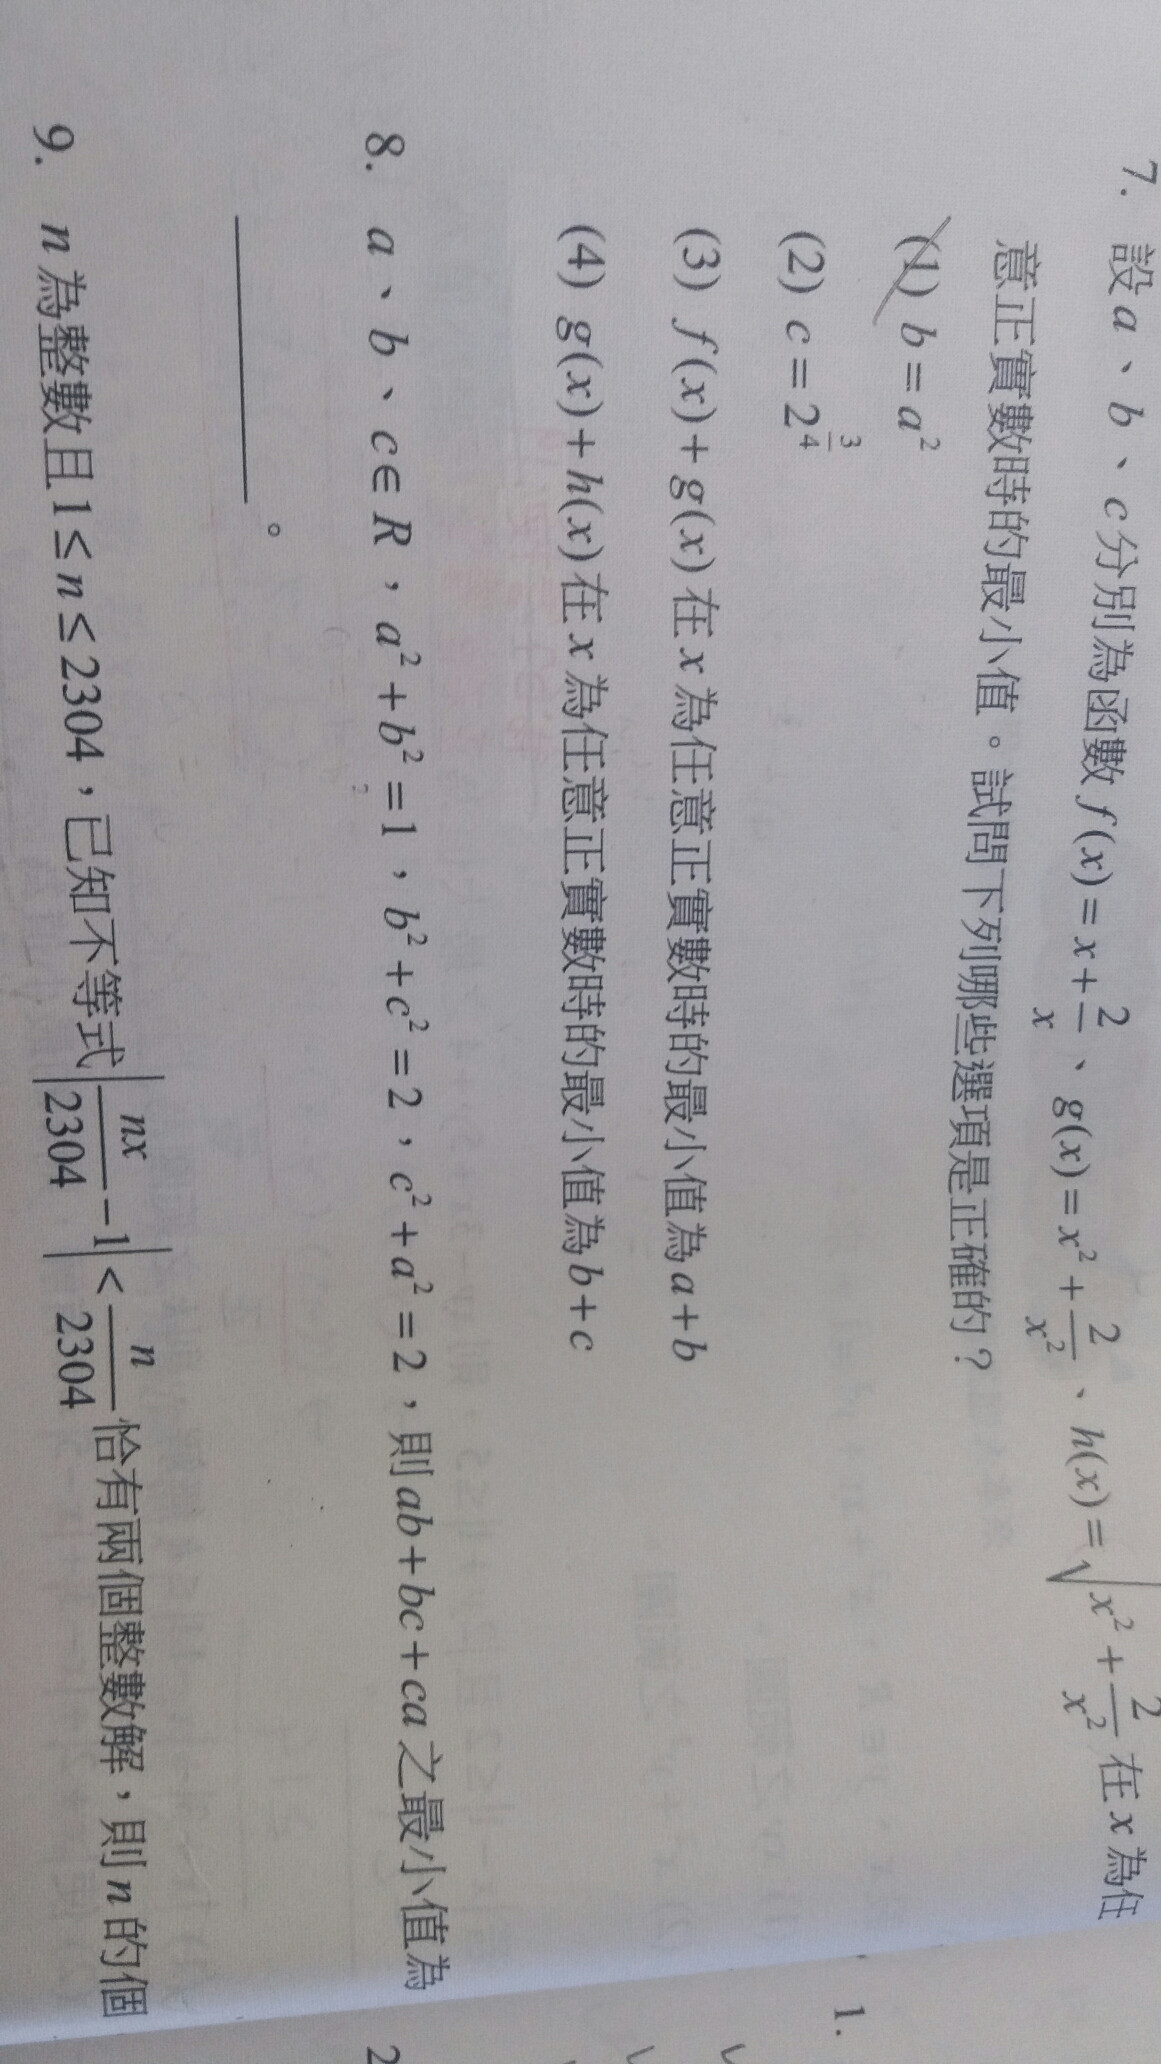 7. 設a、b、c分別為函數f(x)=x+2/x、g(x)=x²+2/x²、h(x)=√(x²+2/x²)在x為任
意正實數時的最小值。試問下列哪些選項是正確的?
(1) b=a²
(2) c=2^(3/4)
(3) f(x)+g(x)在x為任意正實數時的最小值為a+b
(4) g(x)+h(x)在x為任意正實數時的最小值為b+c
8. a、b、c∈R,a²+b²=1,b²+c²=2,c²+a²=2,則ab+bc+ca之最小值為
。
9. n為整數且1≤n≤2304,已知不等式|nx/2304−1|<n/2304恰有兩個整數解,則n的個
1.
2